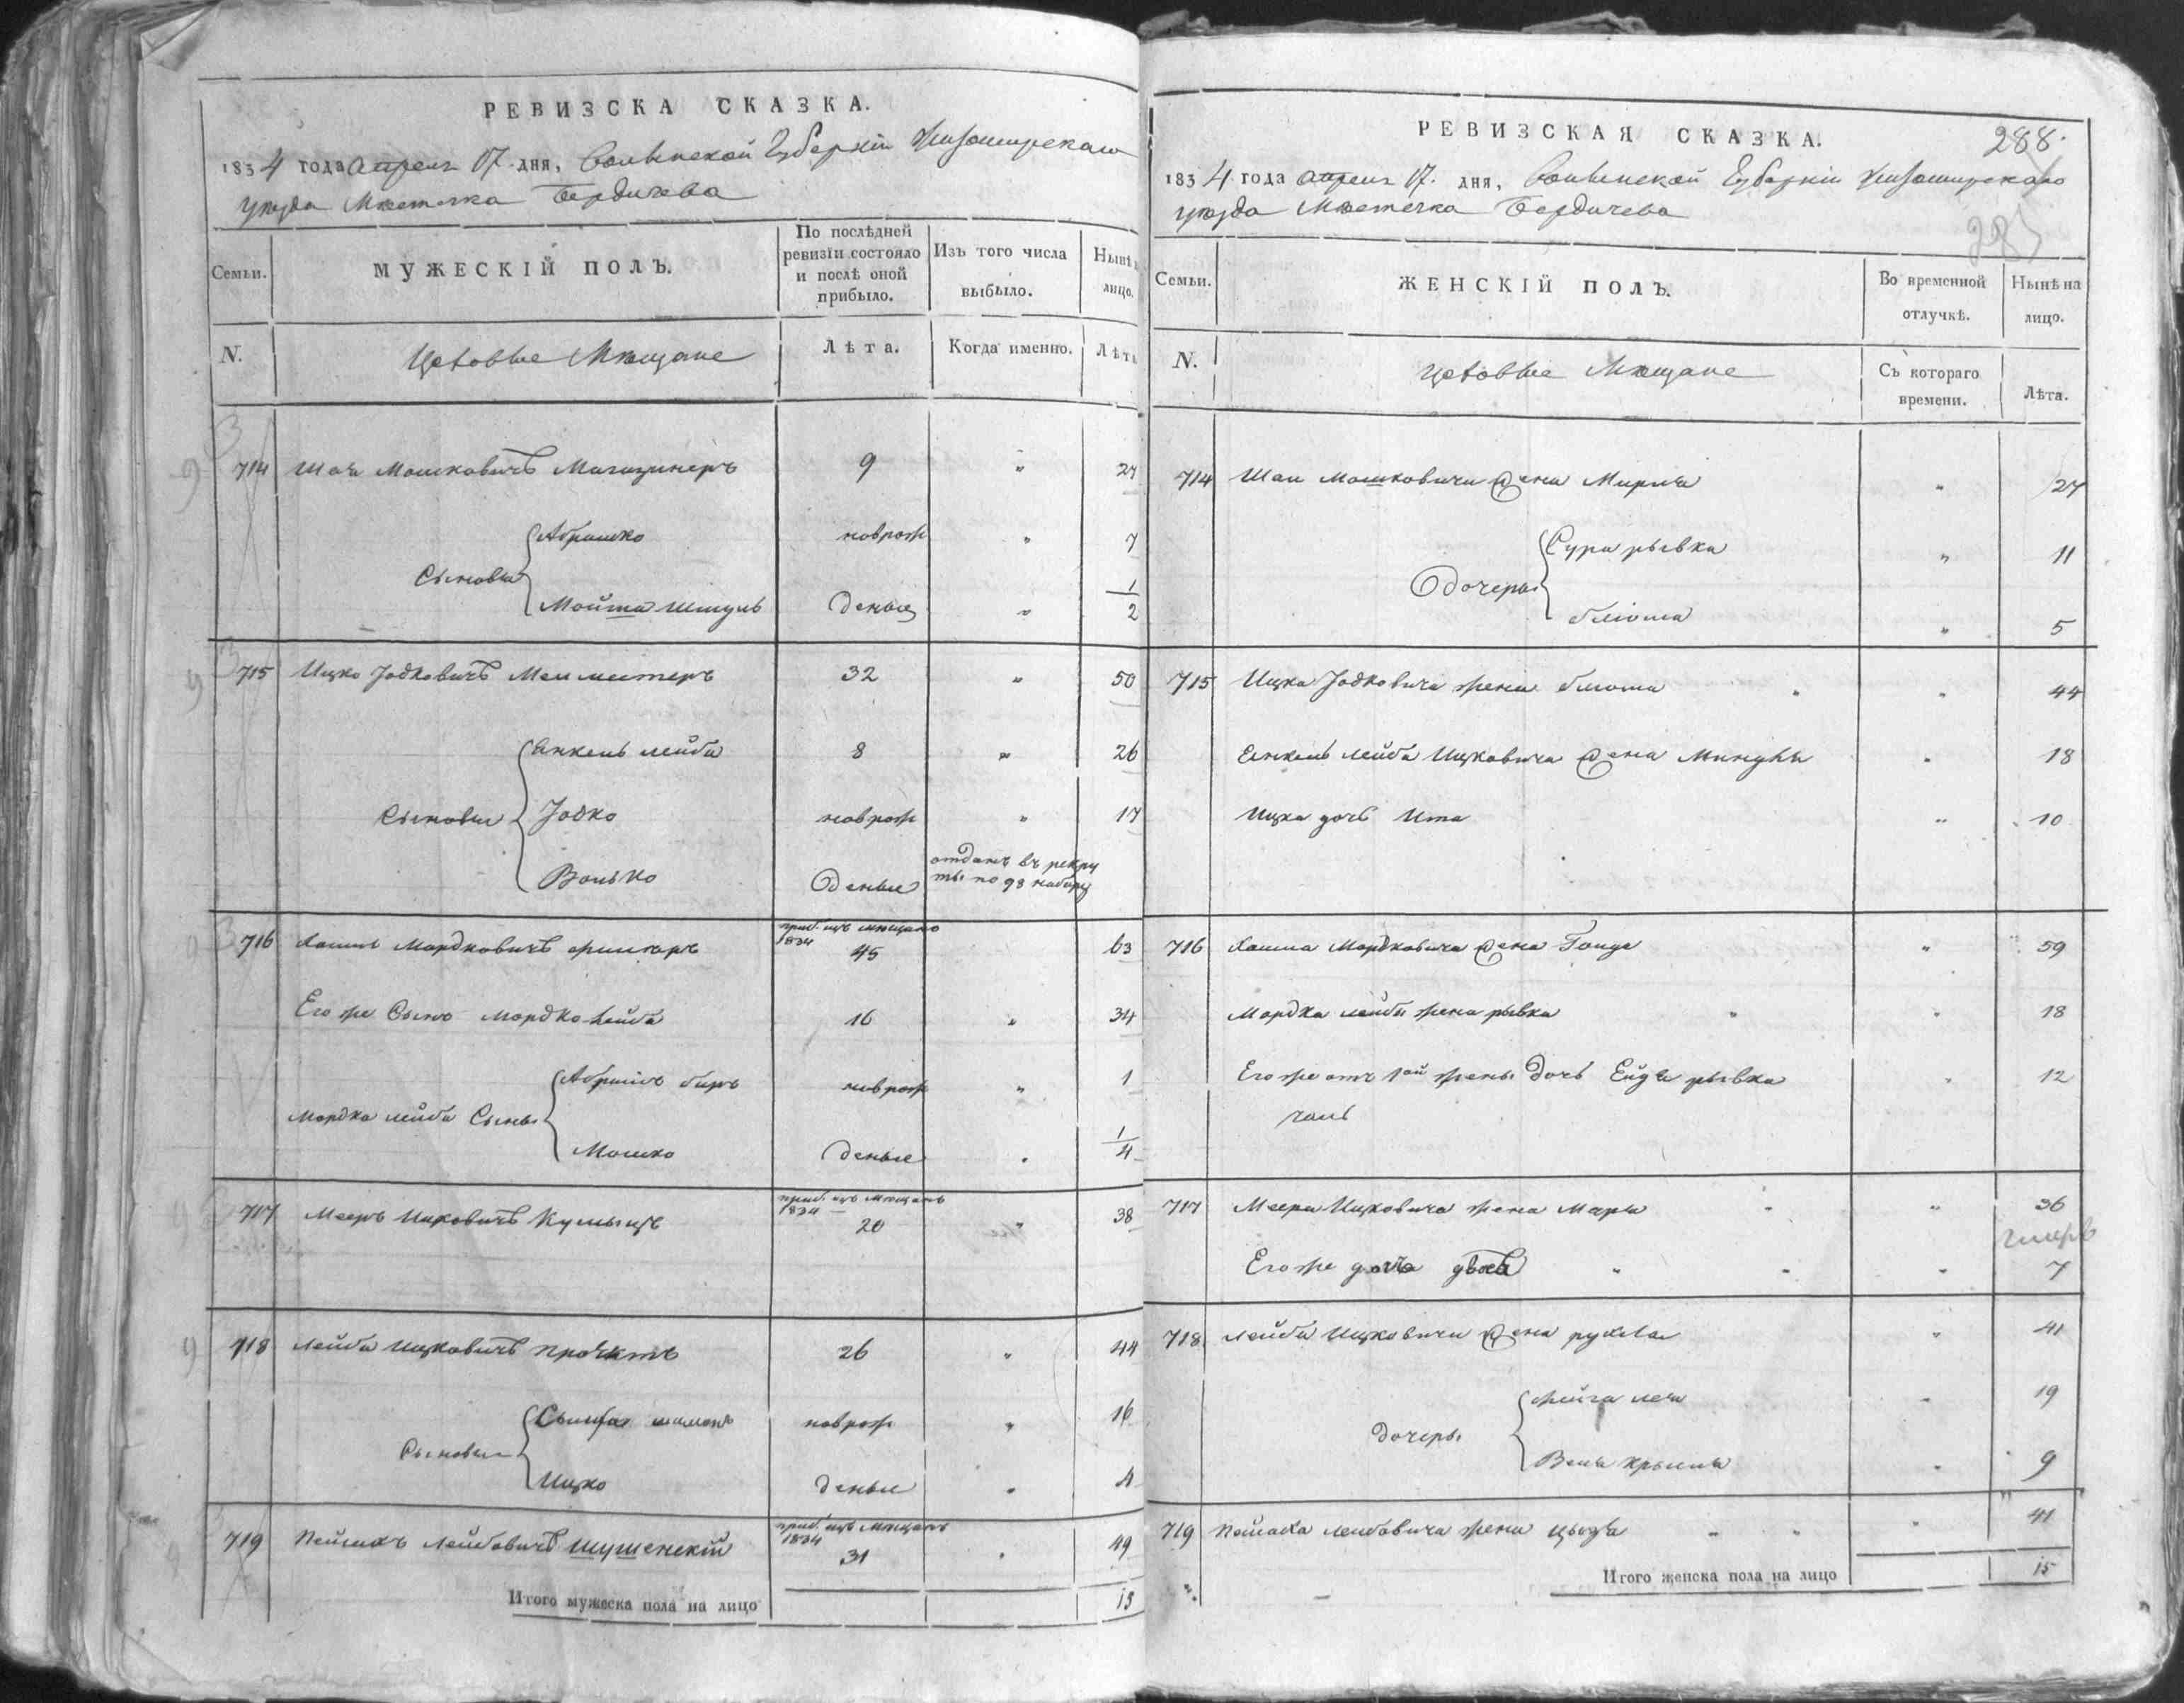 РЕВИЗСКА СКАЗКА.
1834 года апреля 17 дня, Волынской Губерніи Житомирскаго
уезда Местечка Бердичева
Семьи.
МУЖЕСКІЙ ПОЛЪ.
По послѣдней ревизіи состояло и послѣ оной прибыло.
Изъ того числа выбыло.
Нынѣ лицо.
N.
Цеховые Мещане
Лѣта.
Когда именно.
Лѣта
714 Шая Мошковичъ Магазинеръ 9 " 27
Абрамко новрож " 7
Сыновья
Мойша Шмуль
" 1/2
715 Ицко Іодковичъ 32 " 50
Янкель лейба 8 " 26
Сыновья Іодко новрож " 17
Волько отданъ въ рекру
ты по 98 набору
716 Мордковичъ приб. изъ мещанъ
1834
45 63
Его же Сынъ Мордко лейба 16 " 34
Абрамъ беръ новрож " 1
Мордка лейба Сыны
Мошко " 1/4
717 Мееръ Ицковичъ приб. изъ мещанъ
1834
20 " 38
718 Лейба Ицковичъ 26 " 44
новрож " 16
Сыновья
Ицко " 4
719 Пейсахъ Лейбовичъ Шушенскій приб. изъ мещанъ
1834
31 " 49
Итого мужеска пола на лицо 15
РЕВИЗСКАЯ СКАЗКА.
288.
1834 года апреля 17. дня, Волынской Губерніи Житомирскаго
уезда Местечка Бердичева
Семьи.
ЖЕНСКІЙ ПОЛЪ.
Во временной отлучкѣ.
Нынѣ на лицо.
N.
Цеховые Мещане
Съ котораго времени.
Лѣта.
714 Шаи Мошковича жена Мирля " 27
Сура рывка " 11
дочеры
блюма " 5
715 Ицка Іодковича жена блюма " 44
Янкель лейба Ицковича жена Миндля " 18
Ицка дочь Ита " 10
716 Мордковича жена " 59
Мордка лейбы жена рывка " 18
Его же отъ 1ой жены дочь Ейдя рывка " 12
717 Меера Ицковича жена Маря " 36
Его же дочь двося " 7
718 Лейбы Ицковича жена рухля " 41
19
дочеры
9
719 Пейсаха Лейбовича жена " 41
Итого женска пола на лицо 15